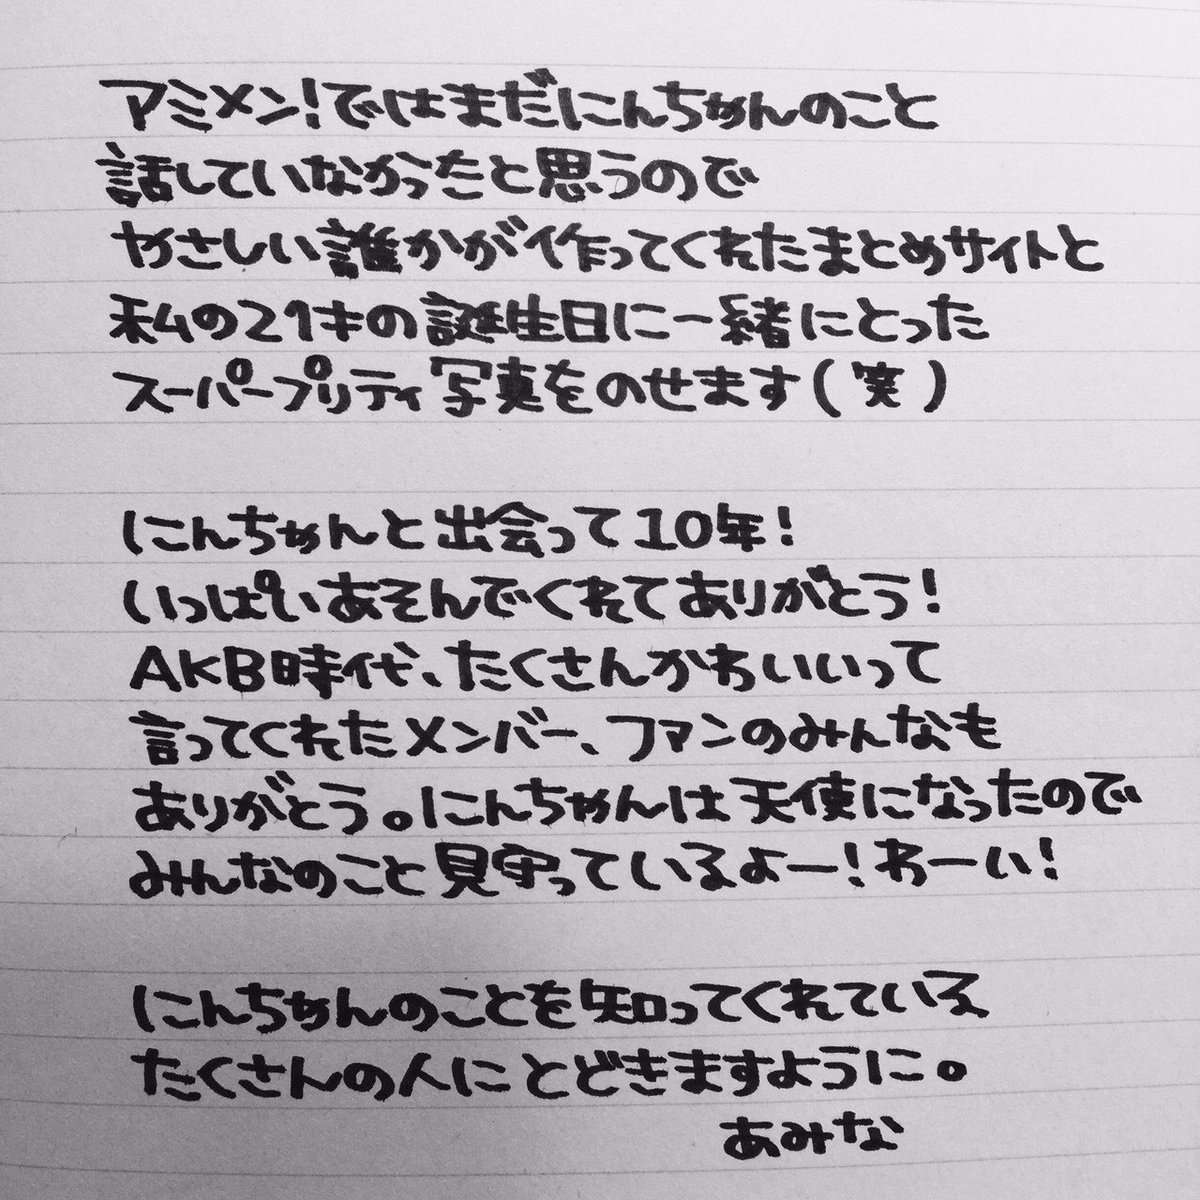 アミメン！ではまだにんちゃんのこと
話していなかったと思うので
やさしい誰かが作ってくれたまとめサイトと
私の21才の誕生日に一緒にとった
スーパープリティ写真をのせます（笑）
にんちゃんと出会って10年！
いっぱいあそんでくれてありがとう！
AKB時代、たくさんかわいいって
言ってくれたメンバー、ファンのみんなも
ありがとう。にんちゃんは天使になったので
みんなのこと見守っているよー！わーい！
にんちゃんのことを知ってくれている
たくさんの人にとどきますように。
あみな